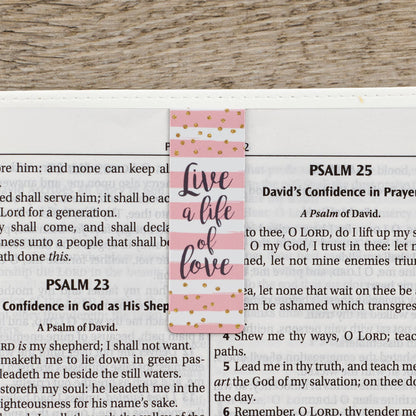 ore him: and none can keep al
d shall serve him; it shall be ac
Lord for a generation.
y shall come, and shall decla
sness unto a people that shall be
ath done this.
PSALM 23
Confidence in God as His Shep
A Psalm of David.
RD is my shepherd; I shall not want.
maketh me to lie down in green pas-
leadeth me beside the still waters.
storeth my soul: he leadeth me in the
righteousness for his name's sake.
Live
a life
of
love
2
PSALM 25
David's Confidence in Prayer
A Psalm of David.
to thee, O LORD, do I lift up my s
O my God, I trust in thee: let r
ned, let not mine enemies triun
ea, let none that wait on thee be a
m be ashamed which transgres
4 Shew me thy ways, O LORD; teach
paths.
5 Lead me in thy truth, and teach me
art the God of my salvation; on thee d
the day.
6 Remember, O LORD, thy tender